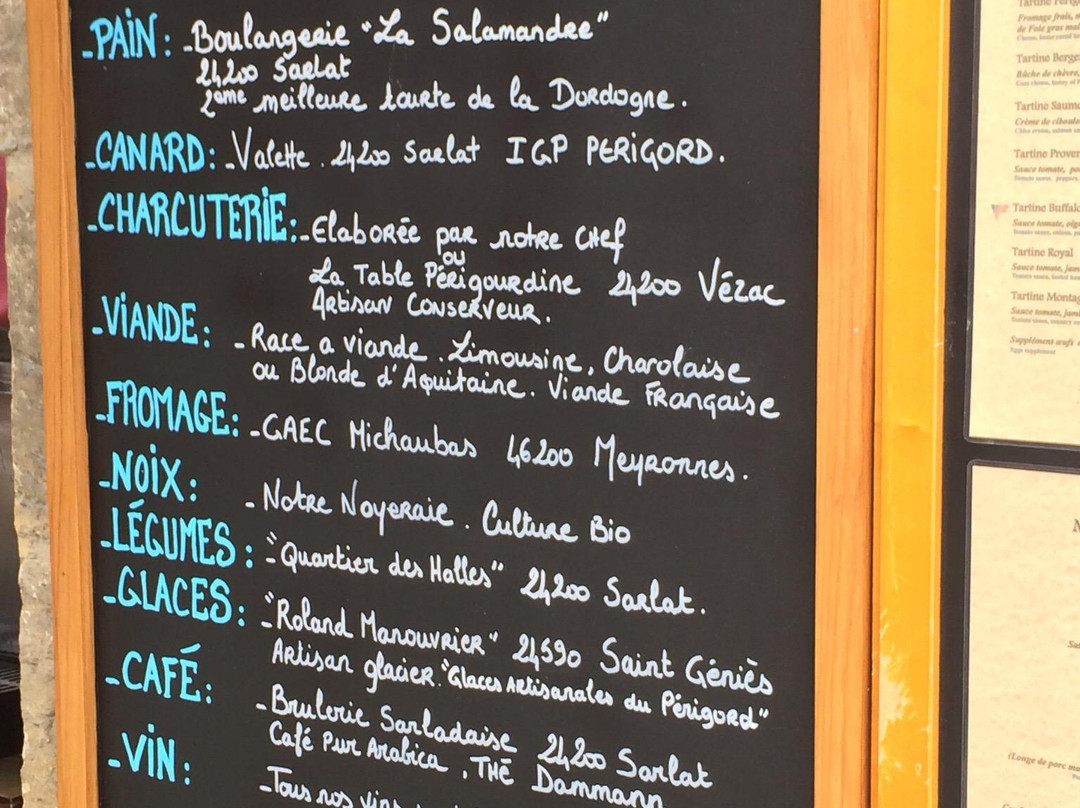 -PAIN: -Boulangerie "La Salamandre"
24200 Sarlat
2ème meilleure tourte de la Dordogne.
-CANARD: -Valette. 24200 Sarlat IGP PERIGORD.
-CHARCUTERIE: -Elaborée par notre Chef
ou
La Table Périgourdine 24200 Vézac
Artisan Conserveur.
-VIANDE: -Race a viande. Limousine, Charolaise
ou Blonde d'Aquitaine. Viande Française
-FROMAGE: -GAEC Michaubas 46200 Meyronnes.
-NOIX: -Notre Noyeraie. Culture Bio
-LÉGUMES: -"Quartier des Halles" 24200 Sarlat.
-GLACES: -"Roland Manouvrier" 24590 Saint Géniès
Artisan glacier. "Glaces Artisanales du Périgord"
-CAFÉ: -Brulerie Sarladaise 24200 Sarlat
Café Pur Arabica, THÉ Dammann
-VIN: -Tous nos vins
Fromage frais,
de Foie gras
Tartine Berge
Bûche de chèvre,
Tartine Saum
Crème de ciboule
Tartine Prove
Sauce tomate,
Tartine Buffal
Sauce tomate,
Tartine Royal
Sauce tomate, jam
Tartine Monta
Sauce tomate, jam
Supplément œufs
(Longe de porc